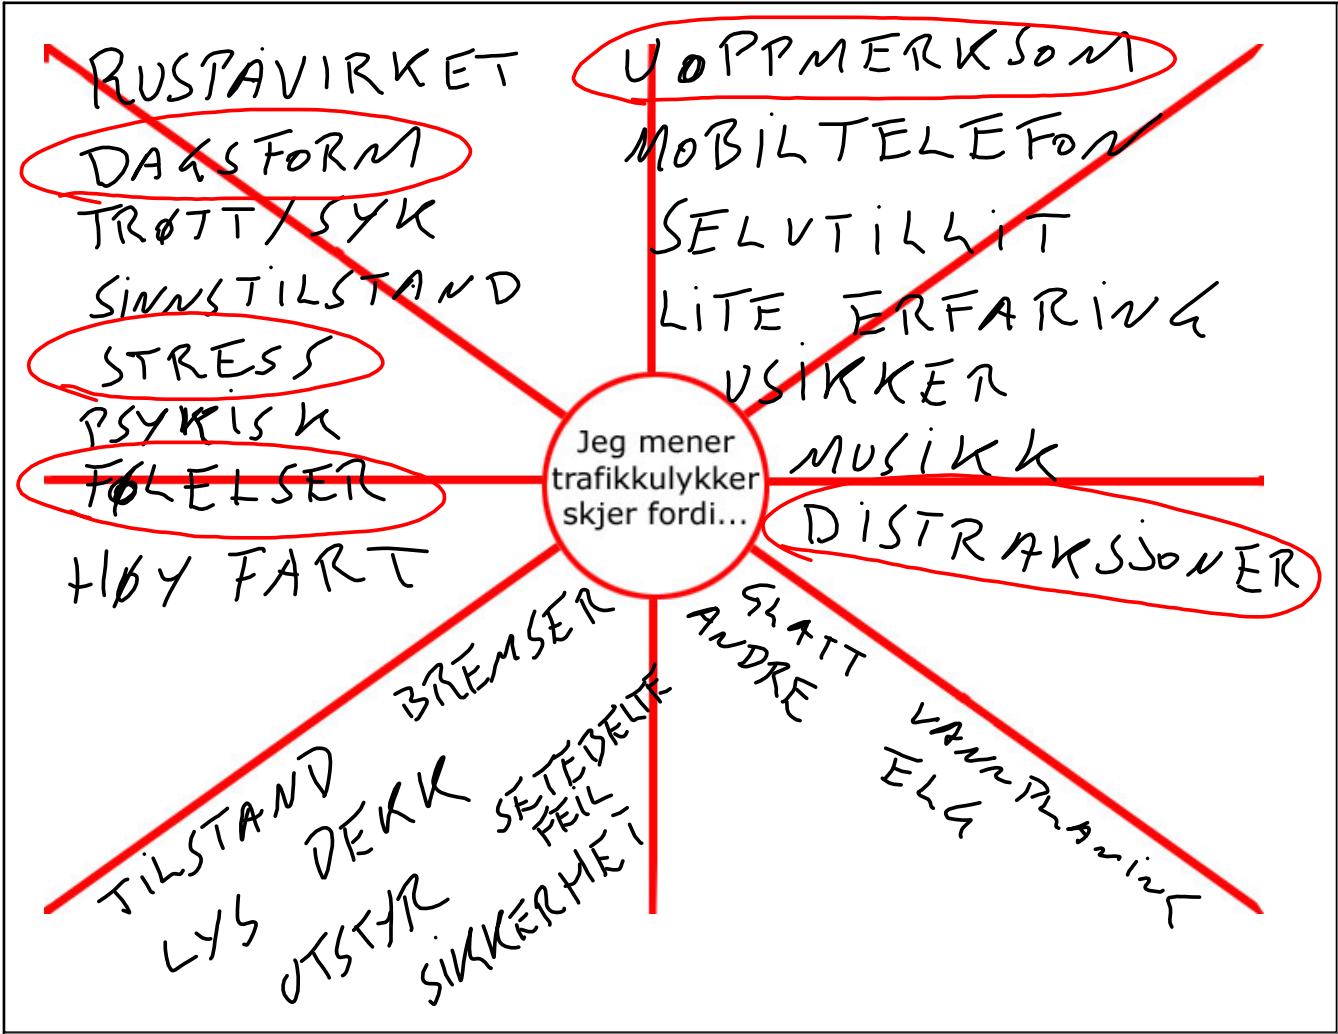 RUSPÅVIRKET
DAGSFORM
TRØTT/SYK
SiNNSTiLSTAND
STRESS
PSYKiSK
FØLELSER
HØY FART
UOPPMERKSOM
MOBiLTELEFON
SELVTiLLiT
LiTE ERFARiNG
USiKKER
MUSiKK
DiSTRAKSJONER
Jeg mener
trafikkulykker
skjer fordi...
BREMSER
TiLSTAND
DEKK
SETEBELTE
FEiL
LYS
UTSTYR
SiKKERHET
GLATT
ANDRE
VANNPLANiNG
ELG